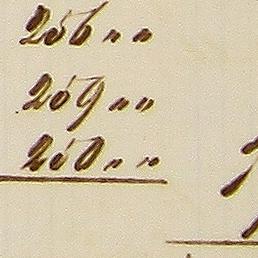 256 " "
259 " "
250 " "